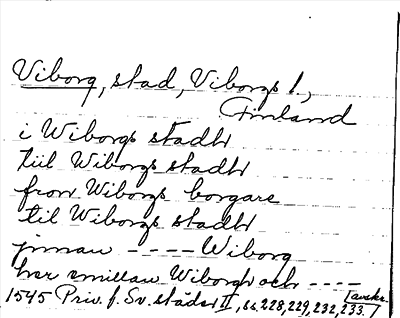 Viborg, stad, Viborgs l.,
Finland
i Wiborgs stadh
tiil Wiborgs stadh
fron Wiborgs borgare
til Wiborgs stadh
jnnan ---- Wiborg
her emillan Wiborgh och ----
1545 Priv. f. Sv. städer II, ss. 228, 229, 232, 233. / avskr. /